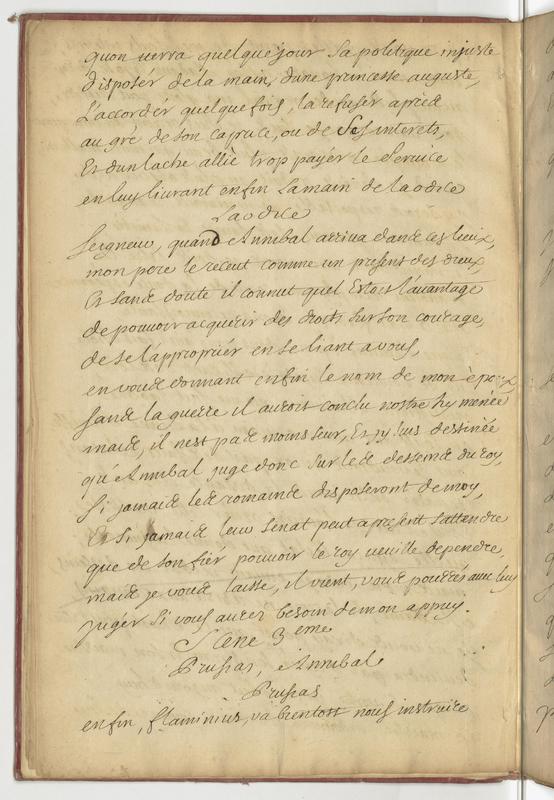 quon verra quelque jour sa politique injuste
disposér de la main, dune princesse auguste,
L'accordér quelque fois, la refusér apréd
au gré de son caprice, ou de Ses interets,
Et dun lache allié trop payér le Service
en luy livrant enfin la main de laodice
Laodice
Seigneur, quand Annibal arriva dand ces lieux,
mon pere le recent comme un present des dieux,
Et sand doute il connut quel Estoit l'auantage
de pouvoir acquerir des droits sur son courage,
de se l'appropriér en se liant a vous,
en voud donnant enfin le nom de mon époux
sand la guerre il auroit conclu nostre hymenée
maid, il nest pad moins seur, Et j'y suis destinée
qu'Annibal juge donc sur led desseind du roy,
Si jamaid led romaind disposeront de moy,
Et si jamaid leur sénat peut apresent sattendre
que de son fiér pouvoir le roy veuille dependre,
maid je voud laisse, il vient, voud pourrés avec luy
juger Si vous aurez besoin de mon appuy.
Scene 3eme
Prusias, Annibal
Prusias
enfin, flaminius, va bientost nous instruire